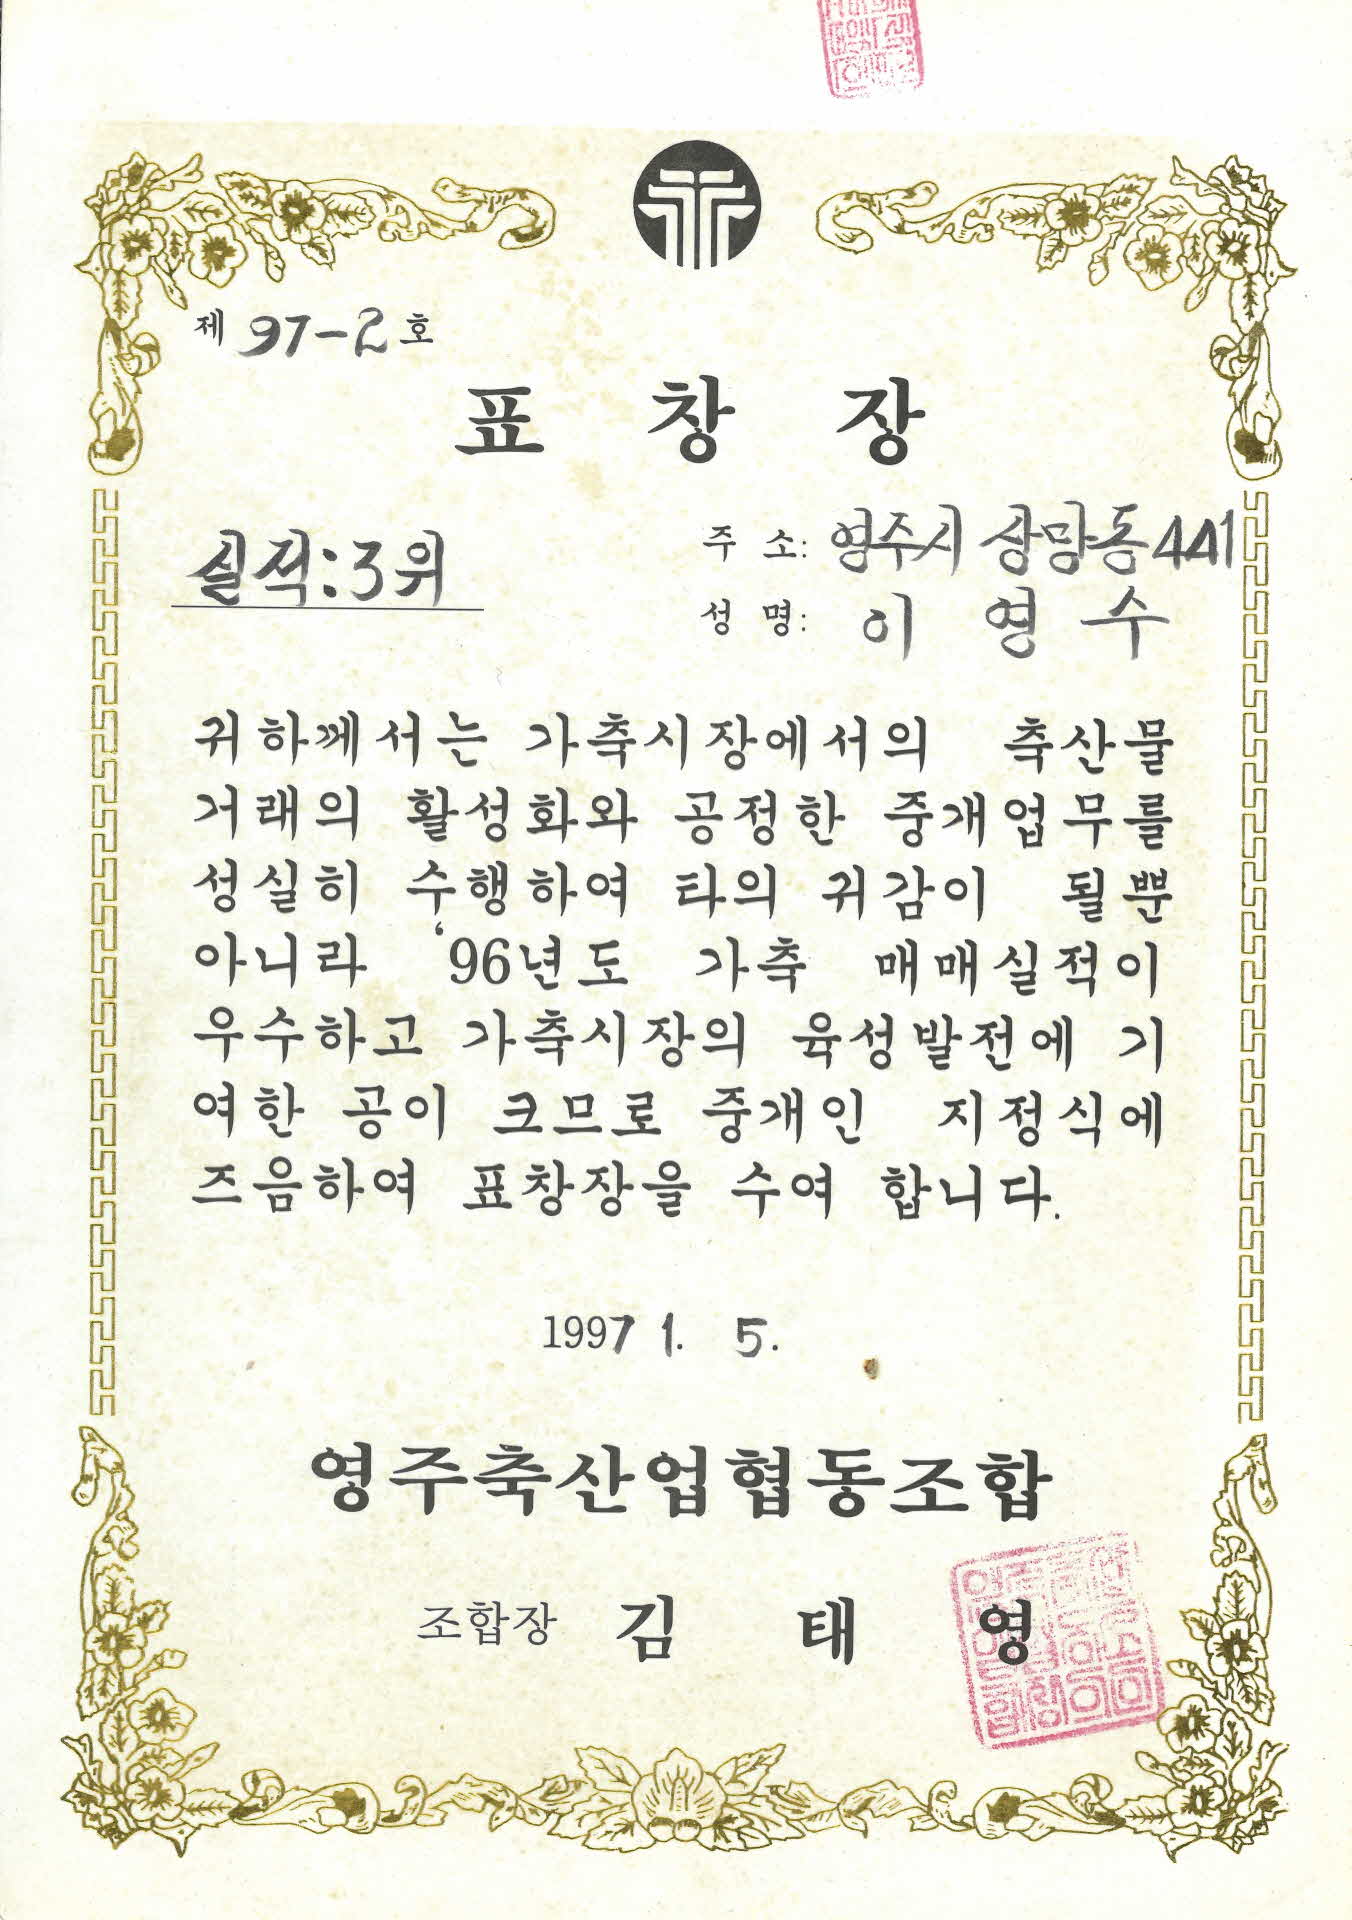 제 97-2 호
표 창 장
실적:3위
주 소: 영주시 상망동 441
성 명: 이 영 수
귀하께서는 가축시장에서의 축산물
거래의 활성화와 공정한 중개업무를
성실히 수행하여 타의 귀감이 될뿐
아니라 '96년도 가축 매매실적이
우수하고 가축시장의 육성발전에 기
여한 공이 크므로 중개인 지정식에
즈음하여 표창장을 수여 합니다.
1997 1. 5.
영주축산업협동조합
조합장 김 태 영